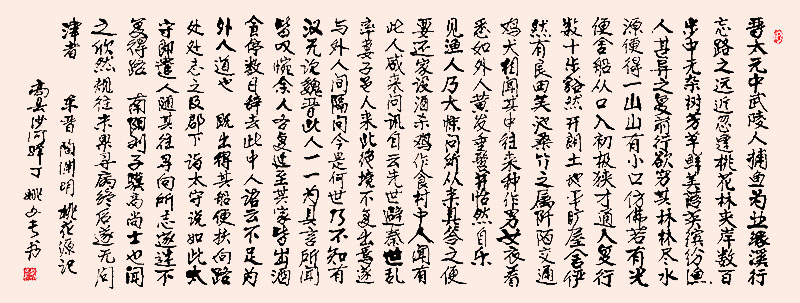 晋太元中武陵人捕鱼为业缘溪行
忘路之远近忽逢桃花林夹岸数百
步中无杂树芳草鲜美落英缤纷渔
人甚异之复前行欲穷其林林尽水
源便得一山山有小口仿佛若有光
便舍船从口入初极狭才通人复行
数十步豁然开朗土地平旷屋舍俨
然有良田美池桑竹之属阡陌交通
鸡犬相闻其中往来种作男女衣着
悉如外人黄发垂髫并怡然自乐
见渔人乃大惊问所从来具答之便
要还家设酒杀鸡作食村中人闻有
此人咸来问讯自云先世避秦世乱
率妻子邑人来此绝境不复出焉遂
与外人间隔问今是何世乃不知有
汉无论魏晋此人一一为具言所闻
皆叹惋余人各复延至其家皆出酒
食停数日辞去此中人语云不足为
外人道也 既出得其船便扶向路
处处志之及郡下诣太守说如此太
守即遣人随其往寻向所志遂迷不
复得路 南阳刘子骥高尚士也闻
之欣然规往未果寻病终后遂无问
津者 东晋陶渊明 桃花源记
高县洪河 姚